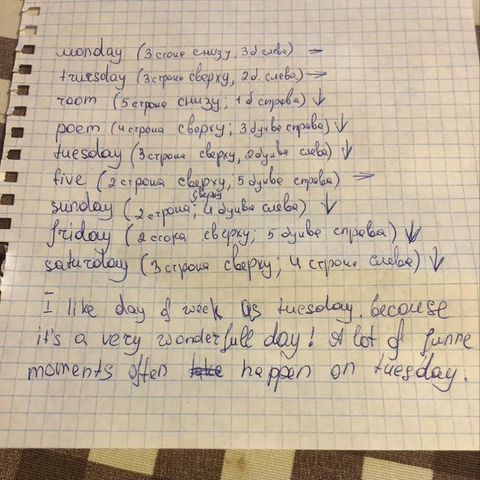 monday (3 строка снизу, 3 б слева) →
truesday (3 строка сверху, 2 б. слева) →
room (5 строка снизу; 1 б справа) ↓
poem (4 строка сверху; 3 букве справа) ↓
tuesday (3 строка сверху, 2 букве слева) ↓
five (2 строка сверху, 5 букве справа) →
sunday (2 строка; сверху 4 букве слева) ↓
friday (2 стока сверху; 5 букве справа) ↓
saturday (3 строка сверху; 4 строка слева) ↓
I like day of week as tuesday. because
it's a very wonderfull day! A lot of funne
moments often happen on tuesday.